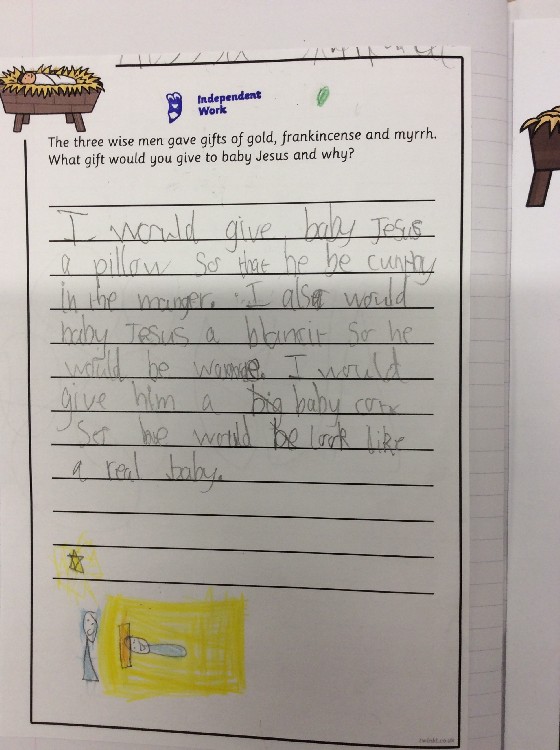 Independent
Work
The three wise men gave gifts of gold, frankincense and myrrh.
What gift would you give to baby Jesus and why?
I would give baby Jesus
a pillow So that he be cumthy
in the manger. I also would
baby Jesus a blancit So he
would be warmde. I would
give him a big baby cott
So he would be look like
a real baby.
twinkl.co.uk